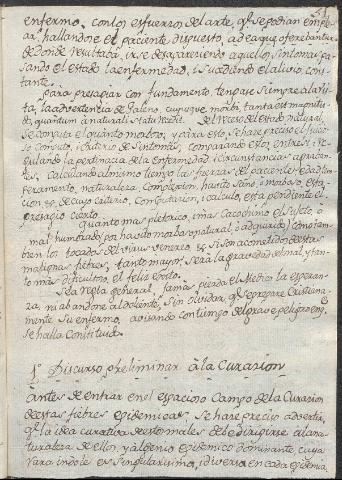 enfermo, con los esfuerzos del arte, qe. se podian emple
ar, hallandose el paciente dispuesto, a
de donde resultaba, irse desapareciendo aquellos sintomas pa
sando el estado la enfermedad, i sucediendo el alivio, cons
tante.
para presagiar con fundamento tengase siempre a la vis
ta, la advertencia de Galeno, cujusque morbi, tanta est magnitu
do, quantum à naturali statu recedit. del receso del estado natural,
se computa el quanto morboso; y para esto, se hace preciso el juicio
so computo, i criterio de sintomas, comparando estos, entre si: re
gulando la pertinacia de la enfermedad i circunstancias agraban
tes, calculando al mismo tiempo las fuerzas del paciente, edad, tem
peramento, naturaleza, complexion, havito sano, i morboso, esta
cion &. de cuyo criterio, computacion, i calculo, esta pendiente el
presagio cierto.
quanto mas pletorico, i mas Cacochimo el sujeto, o
mas humorado, por havito morboso (natural, ò adquirido) como tam
bien los tocados del virus venereo &. si son acometidos de estas
malignas fiebres, tanto mayor, será la gravedad del mal, y tan
to mas dificultoso, el feliz exito.
Sea regla general, jamas pierda el Medico la esperan
za, ni abandone al doliente, sin olvidar, qe. se prepare Cristiana
mente su enfermo, avisando con tiempo del grave peligro en qe.
se halla constituido.
1º Discurso preliminar à la Curacion
Antes de entrar en el espacioso Campo de la Curacion
de estas fiebres epidemicas, se hace preciso advertir,
qe. la idea curativa de estos males debe dirigirse à la na
turaleza de ellos, y al genio epidemico dominante, cuya
rara indole es singularisima, i diversa en cada epidemia.